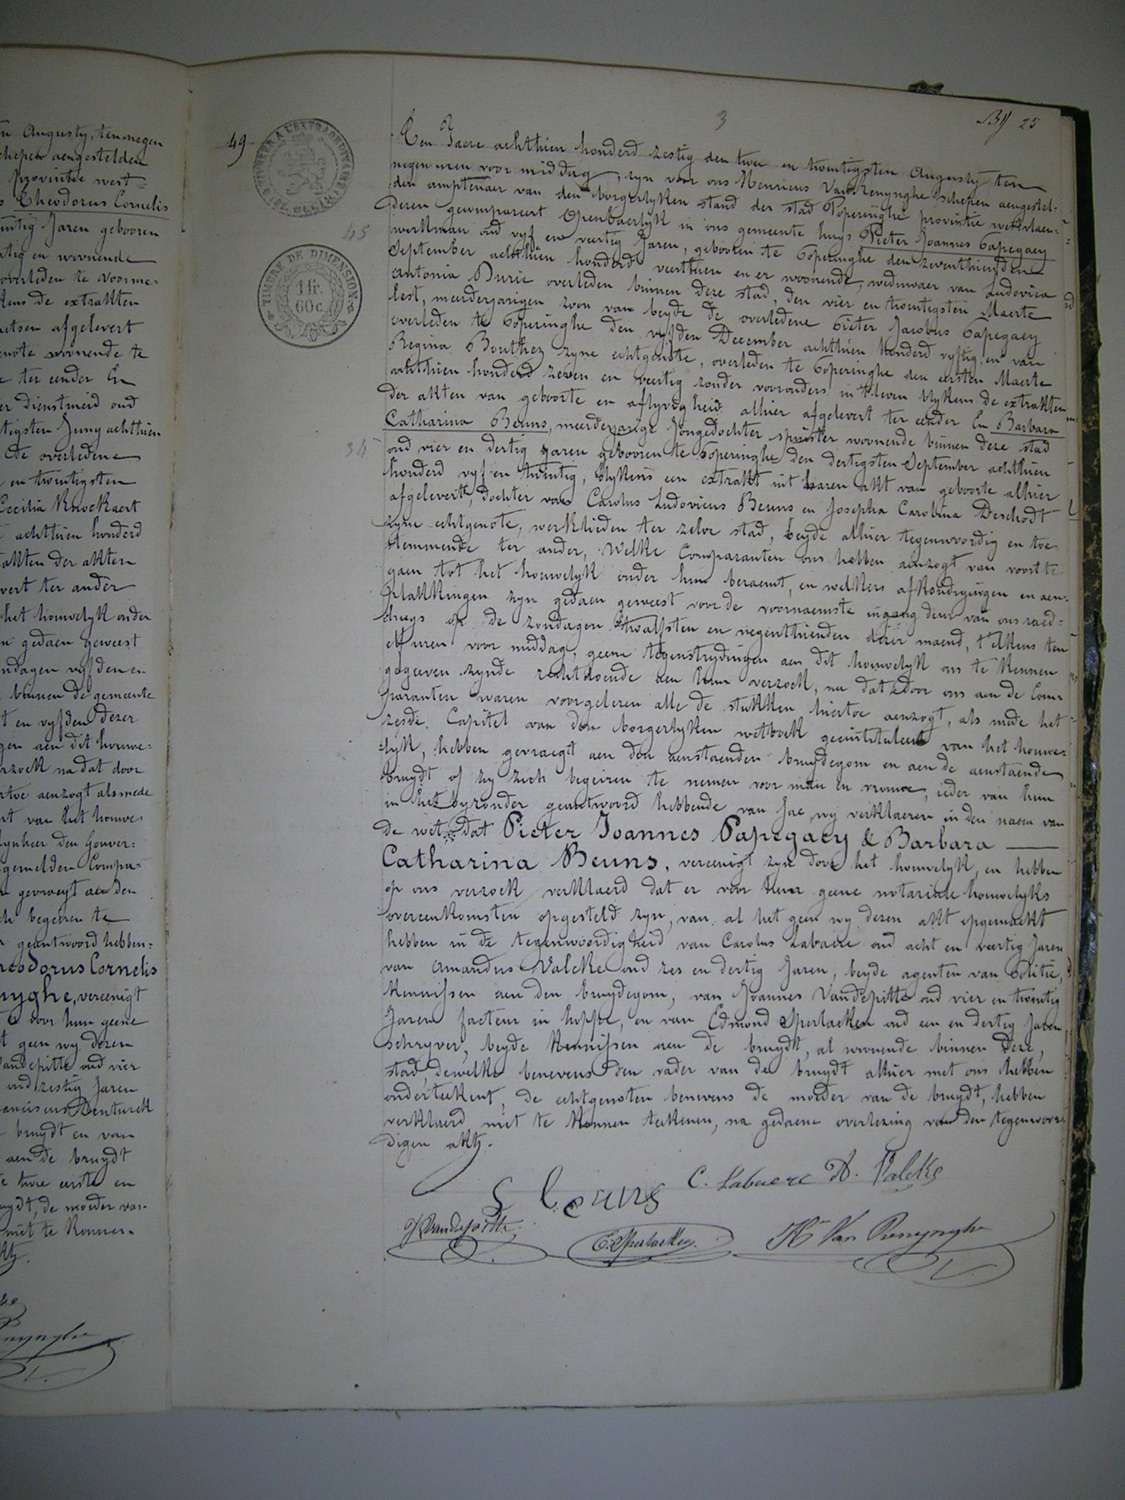 n Augusty, ten negen
chepen aengestelden
Provintie west=
s Theodorus Cornelis
intig Jaren gebooren
tig en woonende
overleden te voorme-
kens de extrakten
aetsen afgelevert
enote woonende te
e ter eender En
er dienstmeid oud
tigsten Juny achthien
de overledene
en twintigsten
Cecilia Knockaert
t achthien honderd
akten der akten
vert ter ander
het houwelyk onder
n gedaen geweest
ondagen vyfden en
binnen de gemeente
t en vyfden dezer
gen aen dit houwe-
erzoek na dat door
ertoe aenzogt als mede
rt van het houwe-
lynheer den Gouver-
gemelden Compa-
n gevraegt aen den
ch begeiren te
n geantwoord hebben-
heodorus Cornelis
nyghe, vereenigt
t er voor hun geene
t geen wy dezen
andepitte oud vier
oud zestig Jaren
ranciscus Denturck
bruydt en van
aen de bruydt
e twee eerste en
uydt, de moeder van
niet te konnen
kt.
49
TIMBRE A L'EXTRAORDINAIRE
45
TIMBRE DE DIMENSION
1 fr.
60 c.
34
3
25
Een Jaere achthien honderd zestig den twee en twintigsten Augusty ten
negen uren voor middag, zyn voor ons Henricus Van Renynghe schepen aengestel-
den amptenaer van den borgerlyken stand der stad Poperinghe provintie westvlaen-
deren gecompareert Openbaerlyk in ons gemeente huys Pieter Joannes Papegaey
werkman oud vyf en veertig Jaren, gebooren te Poperinghe den zeventhienden
September achthien honderd veerthien en er woonende, weduwaer van Ludovica
Antonia Durie overleden binnen deze stad, den vier en twintigsten Maerte
lest, meerderjarigen zoon van beyde de overledene Pieter Jacobus Papegaey
overleden te Poperinghe den vyfden December achthien honderd vyftig en van
Regina Bouthez zyne echtgenote, overleden te Poperinghe den eersten Maerte
achthien honderd zeven en veertig zonder voorouders in 't leven blykens de extrakten
der akten van geboorte en aflyvigheid alhier afgelevert ter eender En Barbara
Catharina Beuns, meerderjarige Jongedochter spinster woonende binnen deze stad
oud vier en dertig Jaren gebooren te Poperinghe den dertigsten September achthien
honderd vyf en twintig, blykens een extrakt uit haren akt van geboorte alhier
afgelevert, dochter van Carolus Ludovicus Beuns en Josepha Carolina Deschodt
zyne echtgenote, werklieden ter zelve stad, beyde alhier tegenwoordig en toe-
stemmende ter ander, Welke Comparanten ons hebben aenzogt van voort te
gaen tot het houwelyk onder hun beraemt, en welkers afkondigingen en aen-
plakkingen zyn gedaen geweest voor de voornaemste ingang deur van ons raed-
huys op de zondagen twaelfsten en negenthienden dezer maend, t'elkens ten
elf uren voor middag, geene tegenstrydingen aen dit houwelyk ons te kennen
gegeven zynde rechtdoende aen hun verzoek, na dat door ons aen de Com-
paranten waren voorgelezen alle de stukken hiertoe aenzogt, als mede het
zesde Capitel van den borgerlyken wetboek geintituleert van het houwe-
lyk, hebben gevraegt aen den aenstaenden bruydegom en aen de aenstaende
bruydt of zy zich begeiren te nemen voor man en vrouwe, ieder van hun
in het byzonder geantwoord hebbende van Jae, wy verklaeren in den naem van
de wet dat Pieter Joannes Papegaey & Barbara
Catharina Beuns, vereenigt zyn door het houwelyk, en hebben
op ons verzoek verklaerd dat er voor hun geene notariale houwelyks
overeenkomsten opgesteld zyn, van al het geen wy dezen akt opgemaekt
hebben in de tegenwoordigheid van Carolus Labaere oud acht en veertig Jaren
van Amandus Valcke oud zes en dertig Jaren, beyde agenten van Politie,
kennissen aen den bruydegom, van Joannes Vandepitte oud vier en twintig
Jaren facteur in hoppe, en van Edmond Sperlaeken oud een en dertig Jaren
schryver, beyde kennissen aen de bruydt, al woonende binnen deze
stad dewelke benevens den vader van de bruydt alhier met ons hebben
onderteekent, de echtgenoten benevens de moeder van de bruydt, hebben
verklaerd niet te konnen teekenen, na gedaene overlezing van den tegenwoor-
digen akt.
C. Labaere A. Valcke
C. Beuns
J. Vandepitte E. Sperlaeken H. Van Renynghe